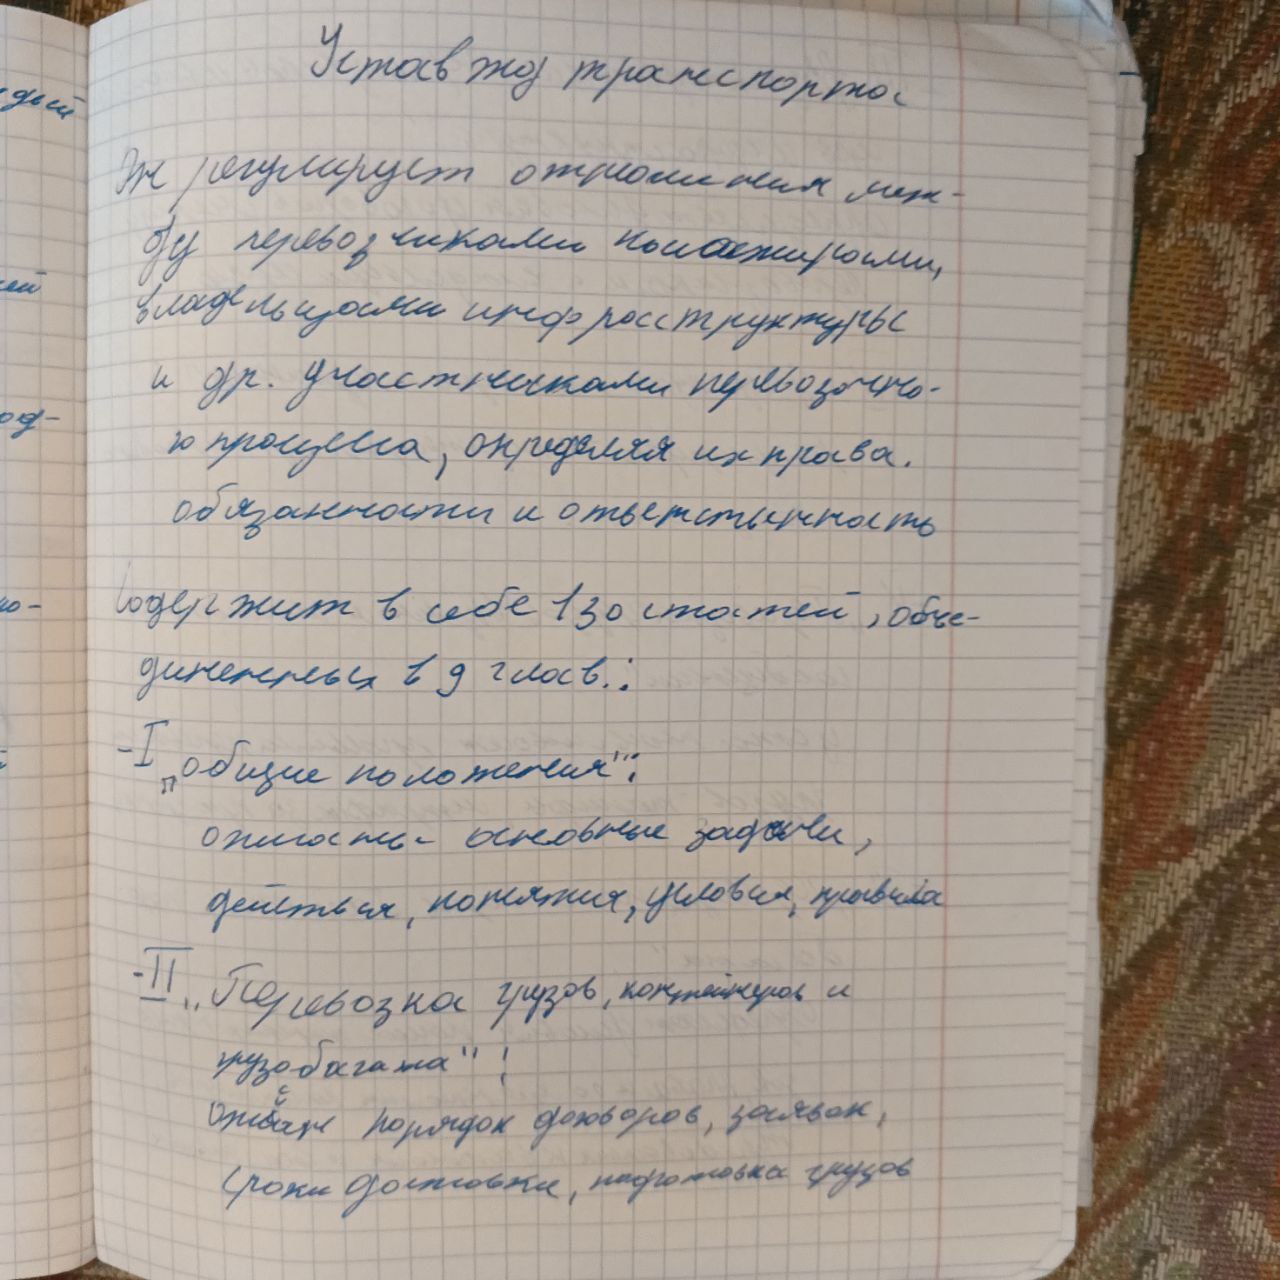 Устав жд транспорта
Он регулирует отношения меж-
ду перевозчиками пассажирами,
владельцами инфраструктуры
и др. участниками перевозочно-
го процесса, определяя их права.
обязанности и ответственность
Содержит в себе 130 статей, объе-
диненных в 9 глав.:
-I
„общие положения":
описаны основные задачи,
действия, понятия, условия, правила
-II „Перевозка грузов, контейнеров и
грузобагажа":
порядок договоров, заявок,
сроки доставки, подготовка грузов
дый
ей
од-
но-